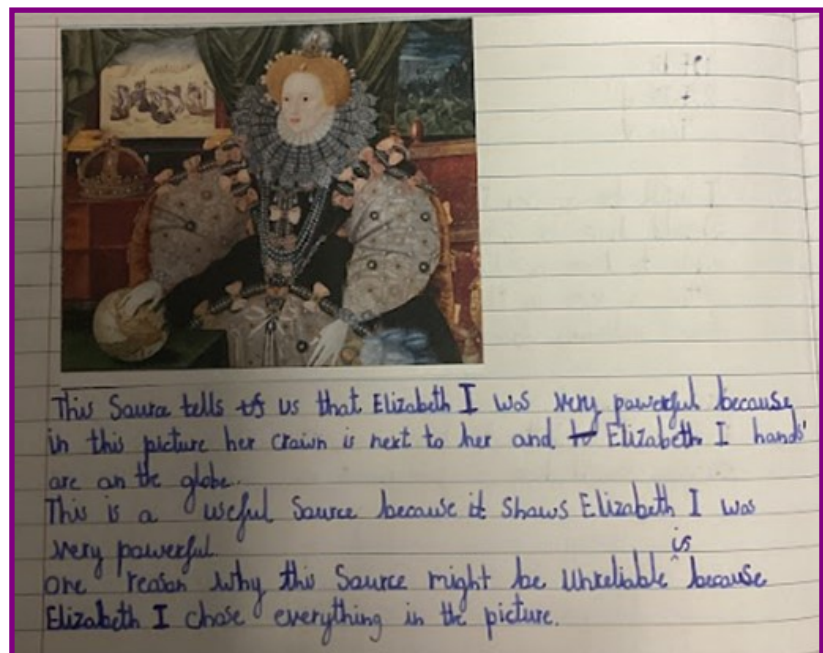 This Source tells us that Elizabeth I was very powerful because
in this picture her crown is next to her and Elizabeth I hands'
are on the globe.
This is a useful source because it shows Elizabeth I was
very powerful.
one reason why this source might be unreliable is because
Elizabeth I chose everything in the picture.